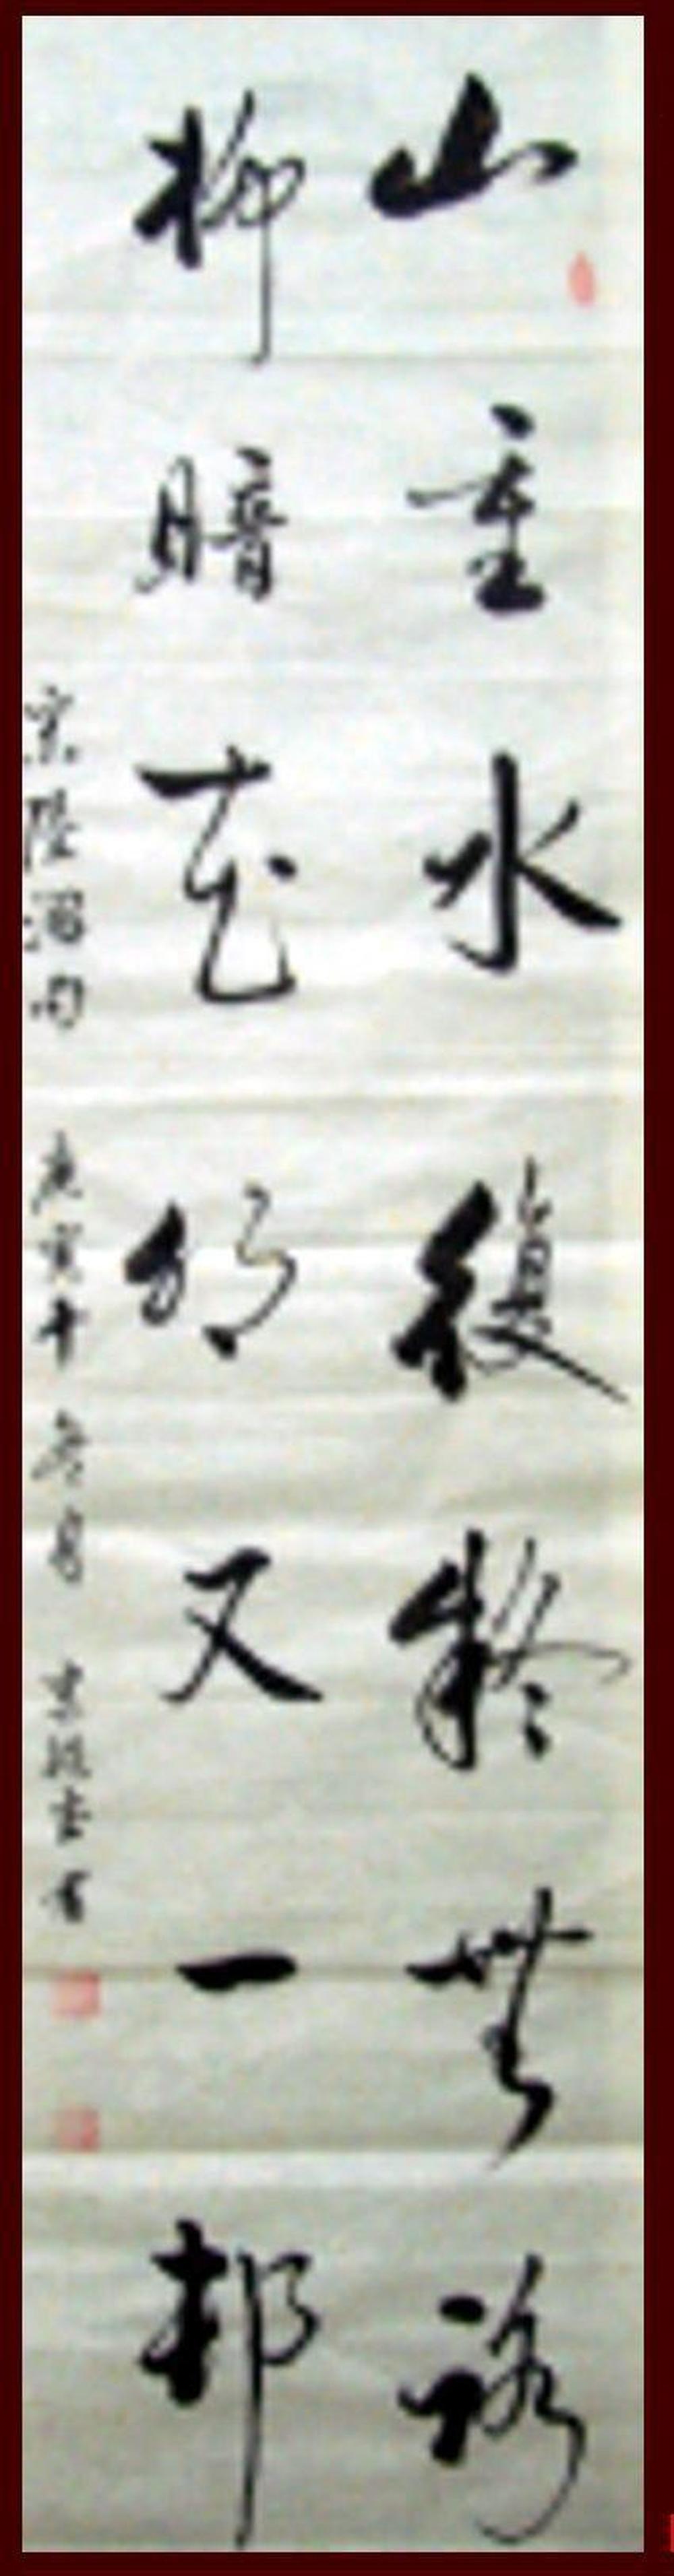 山重水復疑無路
柳暗花明又一邨
宋陸游句 庚寅年 書